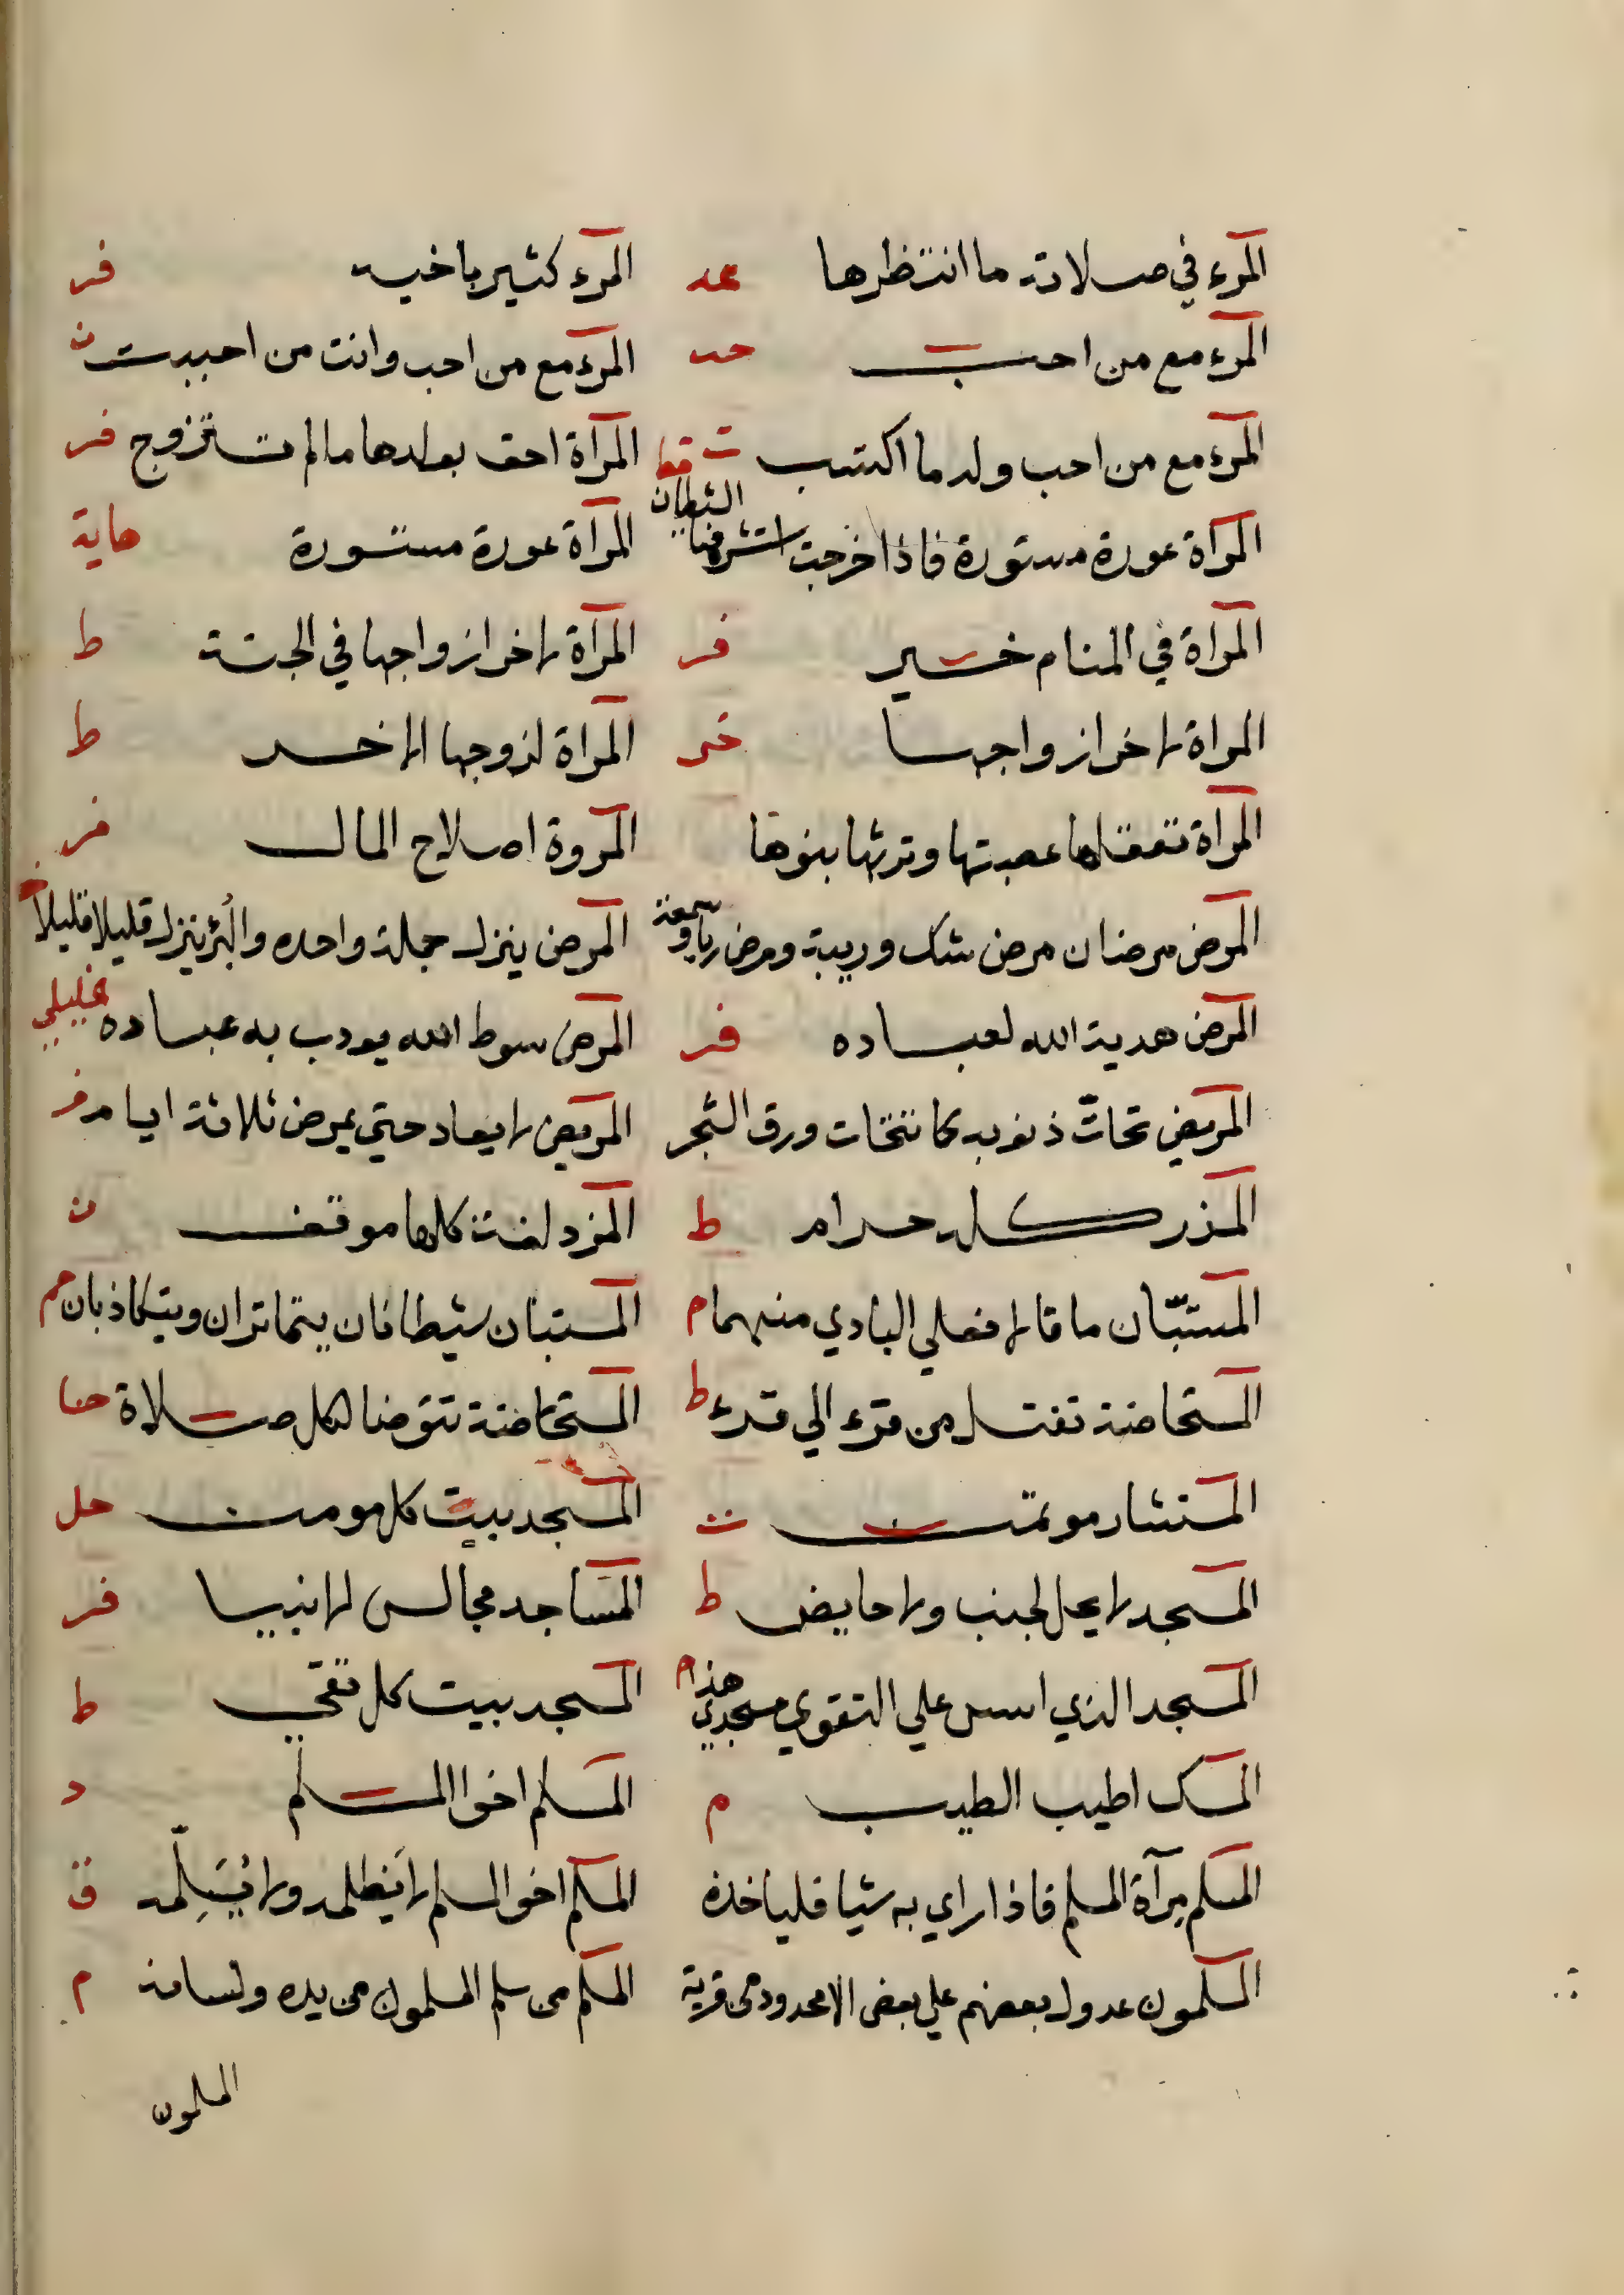 المرء في صلاته ما انتظرها عد المرء كثير باخيه فر
المرء مع من احب حد المرء مع من احب وانت من احببت ت
المرء مع من احب وله ما اكتسب ت قط المرأة احق بولدها مالم تتزوج فر
المرأة عورة مستورة فاذا خرجت استشرفها الشيطان المرأة عورة مستورة
المرأة في المنام خير فر المرأة لاخر ازواجها في الجنة ط
المراة لاخر ازواجها خر المراة لزوجها الاخر ط
المراة تعقلها عصبتها وترثها بنوها المروة اصلاح المال فر
المرض مرضان مرض شك وريبة ومرض ريا وسمعة المرض ينزل جملة واحده والبرؤ ينزل قليلا قليلا
المرض هدية الله لعباده فر المرض سوط الله يودب به عباده خليلي
المريض تحاتّ ذنوبه كما تتحات ورق الشجر المريض لا يعاد حتي يمرض ثلاثة ايام فر
المزر كله حرام ط المزدلفة كلها موقف ن
المستبّان ما قالا فعلي البادي منهما م المستبان شيطانان يتهاتران ويتكاذبان حم
المستحاضة تغتسل من قرء الي قرء ط المستحاضة تتوضا لكل صلاة حنا
المستشار موتمن ت المسجد بيت كل مومن حل
المسجد لا يحل لجنب ولا حايض ط المساجد مجالس الانبيا فر
المسجد الذي اسس علي التقوي مسجدي هذا م المسجد بيت كل تقي ط
المسك اطيب الطيب م المسلم اخو المسلم د
المسلم مرآة المسلم فاذا راي به شيا فلياخذه المسلم اخو المسلم لا يظلمه ولا يسلمه ق
المسلمون عدول بعضهم علي بعض الا محدود في فرية المسلم من سلم المسلمون من يده ولسانه م
المسلمون